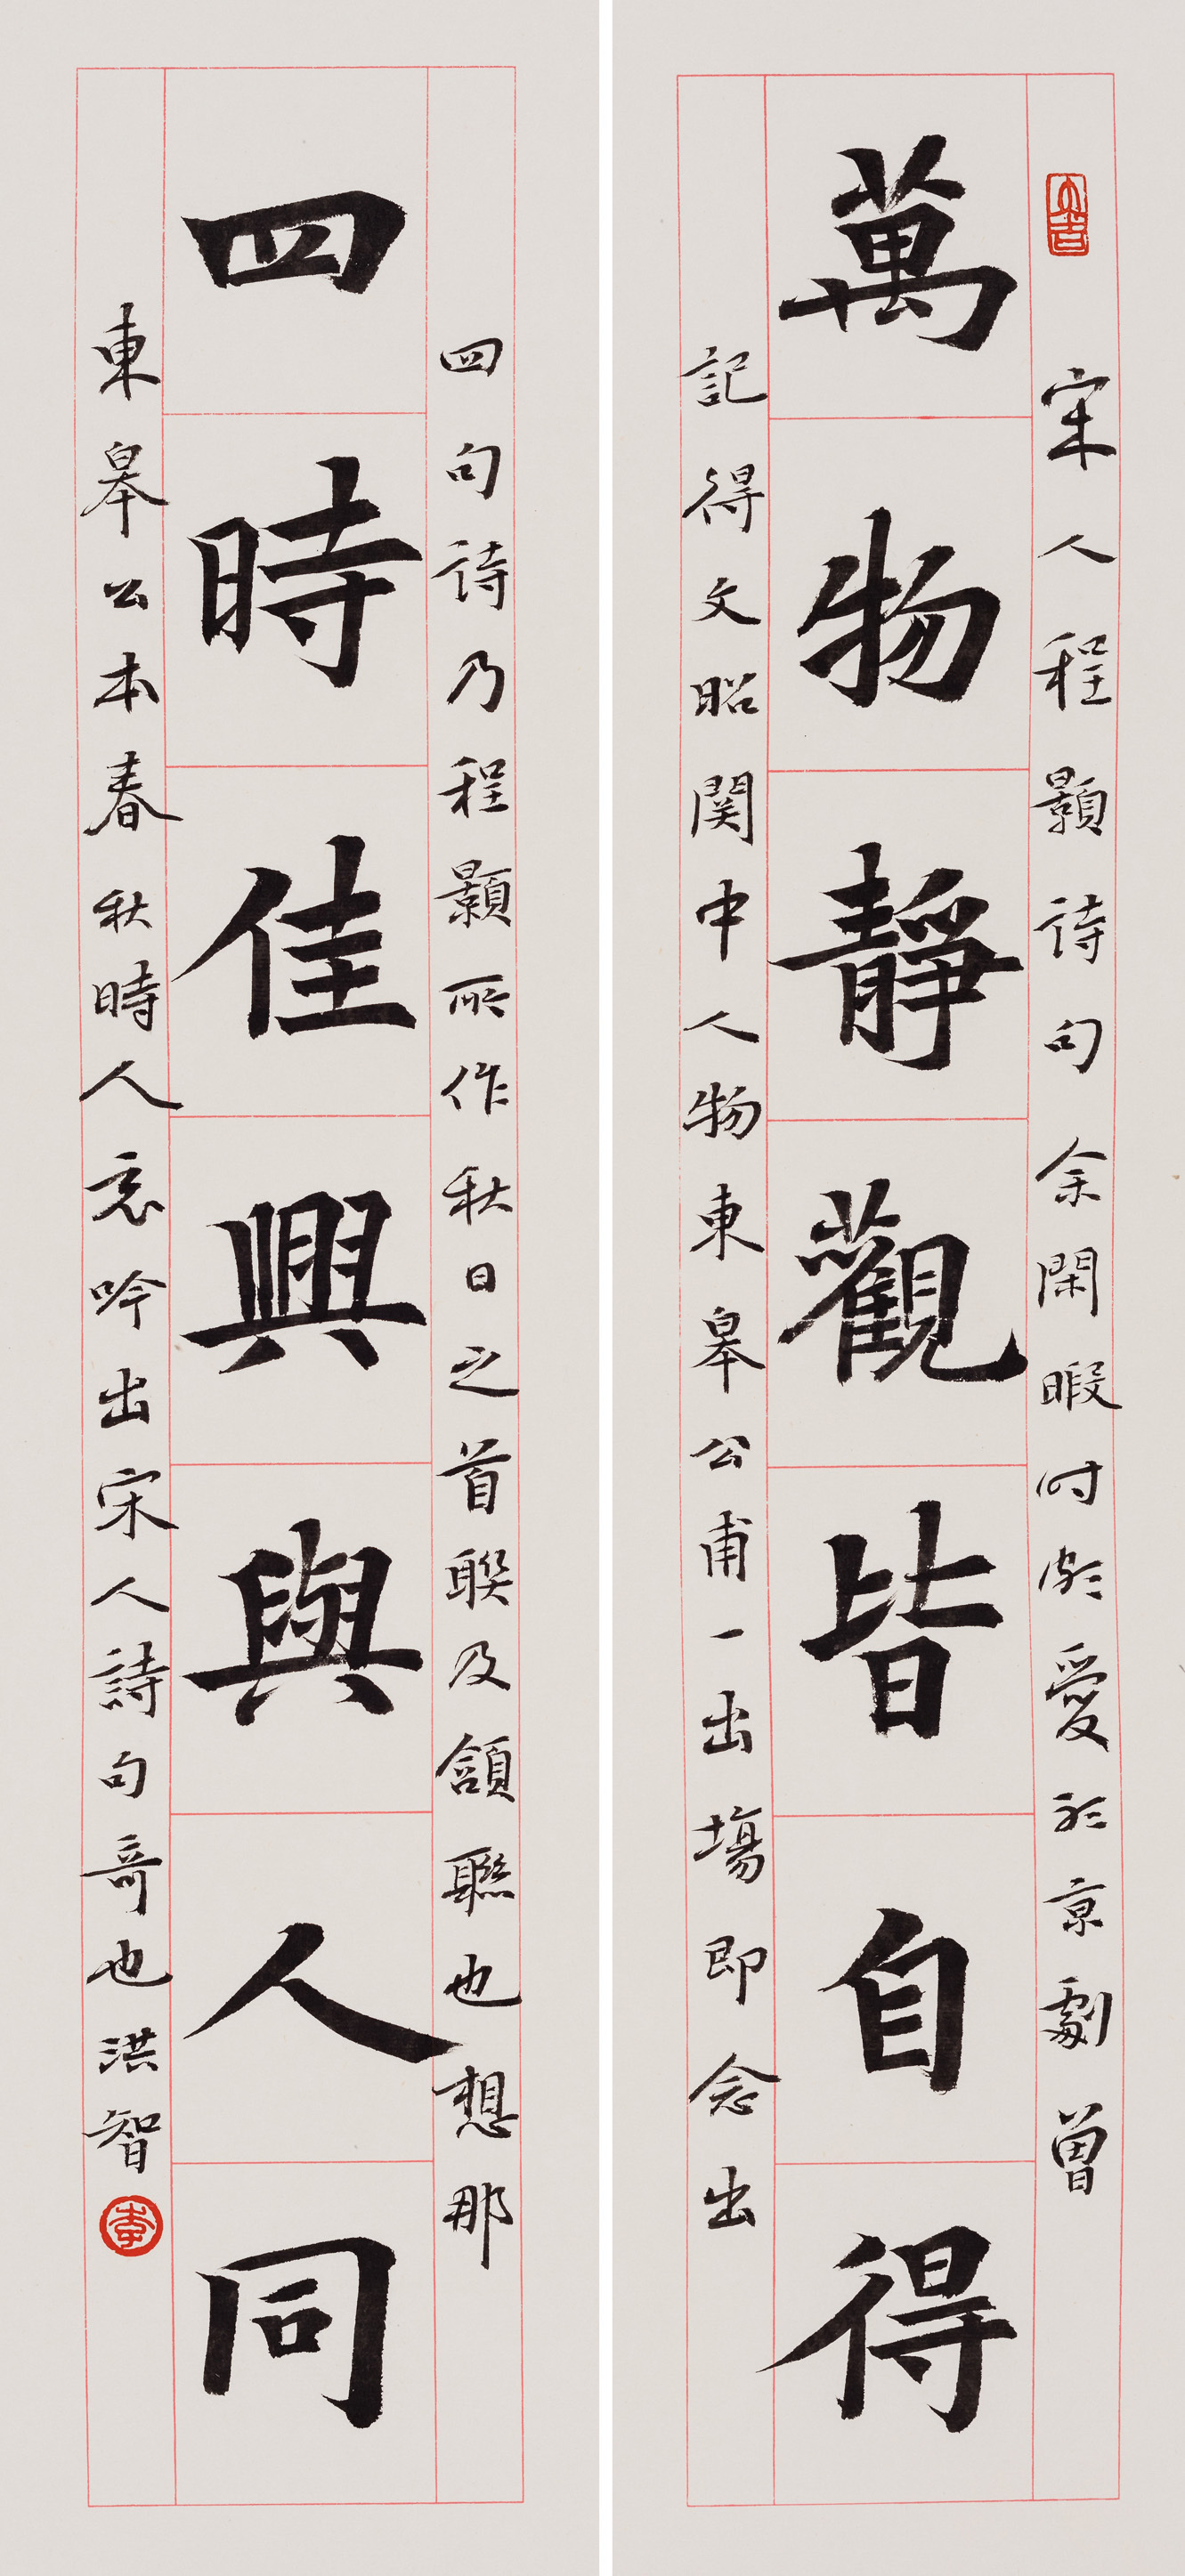 萬物靜觀皆自得
宋人程顥詩句余閑暇时頗愛於京劇曾
記得文昭関中人物東皋公甫一出場即念出
四時佳興與人同
四句詩乃程顥所作秋日之首聯及頷聯也想那
東皋公本春秋時人竟吟出宋人詩句奇也洪智